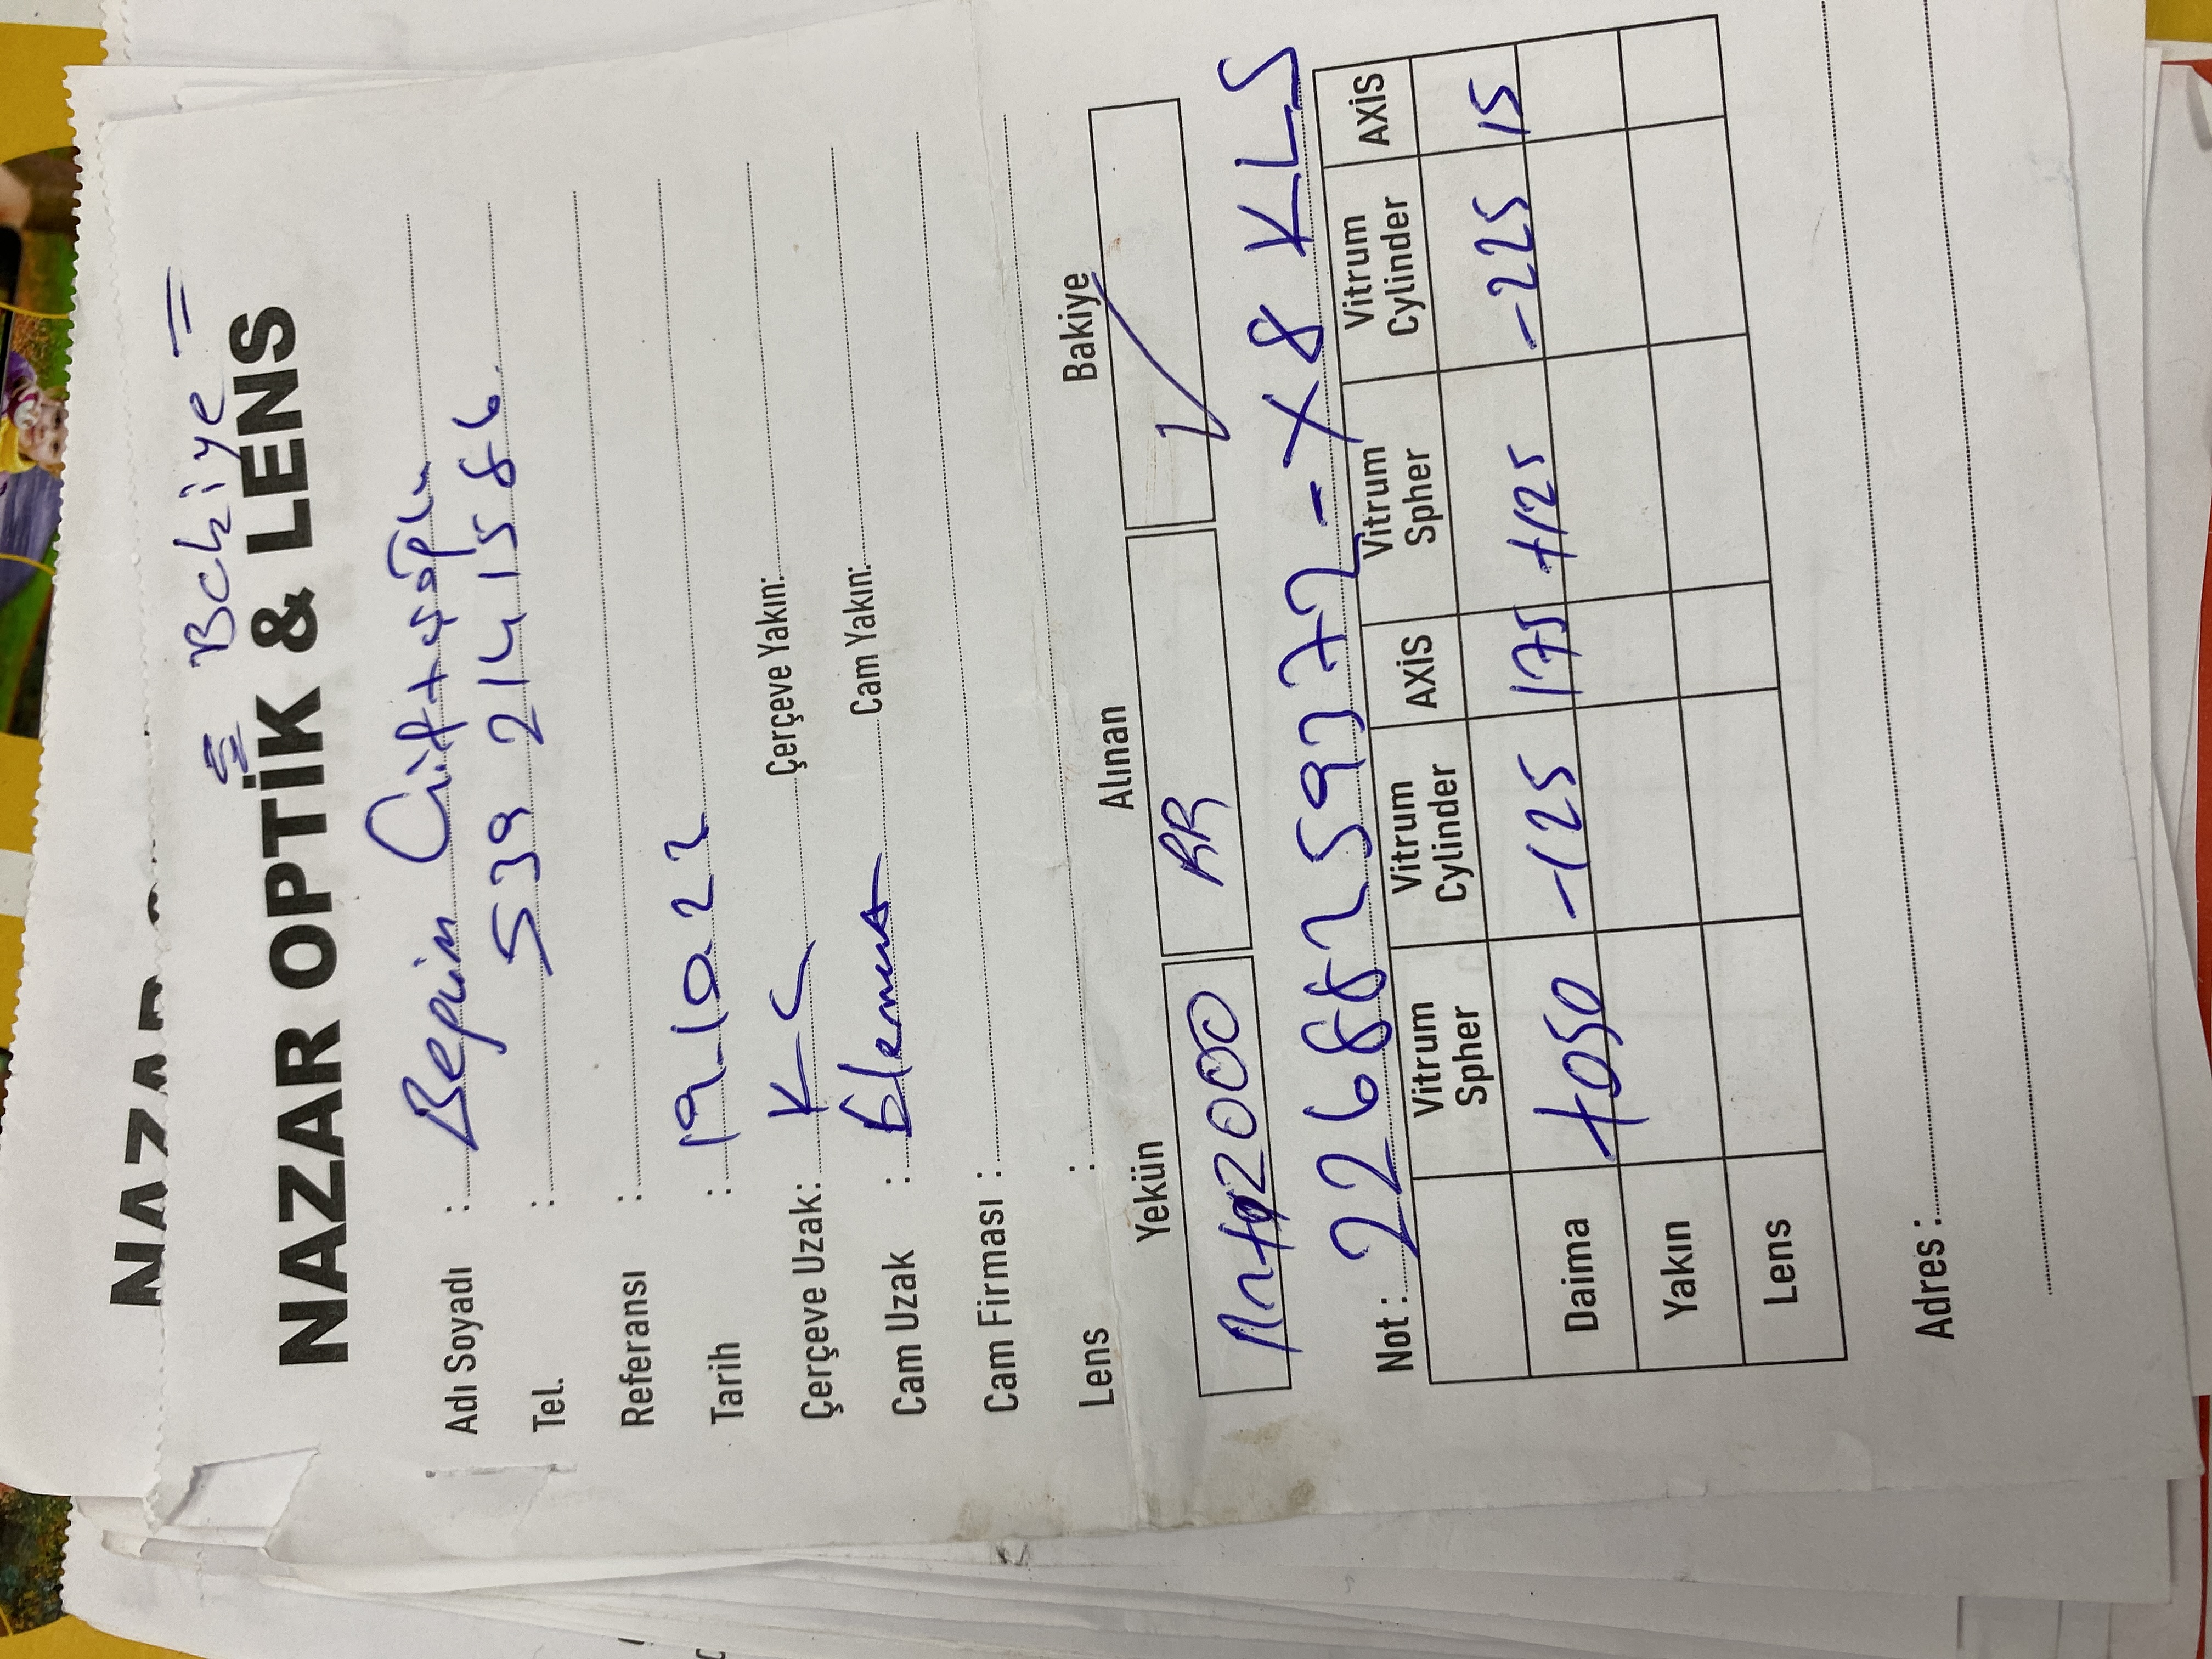 = Bakiye =
NAZAR OPTİK & LENS
Adı Soyadı : Begüm Çiftçioğlu
Tel. : 539 214 15 86.
Referansı :
Tarih : 19.10.22
Çerçeve Uzak: KC Çerçeve Yakın:
Cam Uzak : Element Cam Yakın:
Cam Firması :
Lens :
Yekün Alınan Bakiye
2000 RR ✓
Not : 22688259372 - X8 KLS
Vitrum Spher Vitrum Cylinder AXİS Vitrum Spher Vitrum Cylinder AXİS
Daima +050 -125 175 +125 -225 15
Yakın
Lens
Adres :